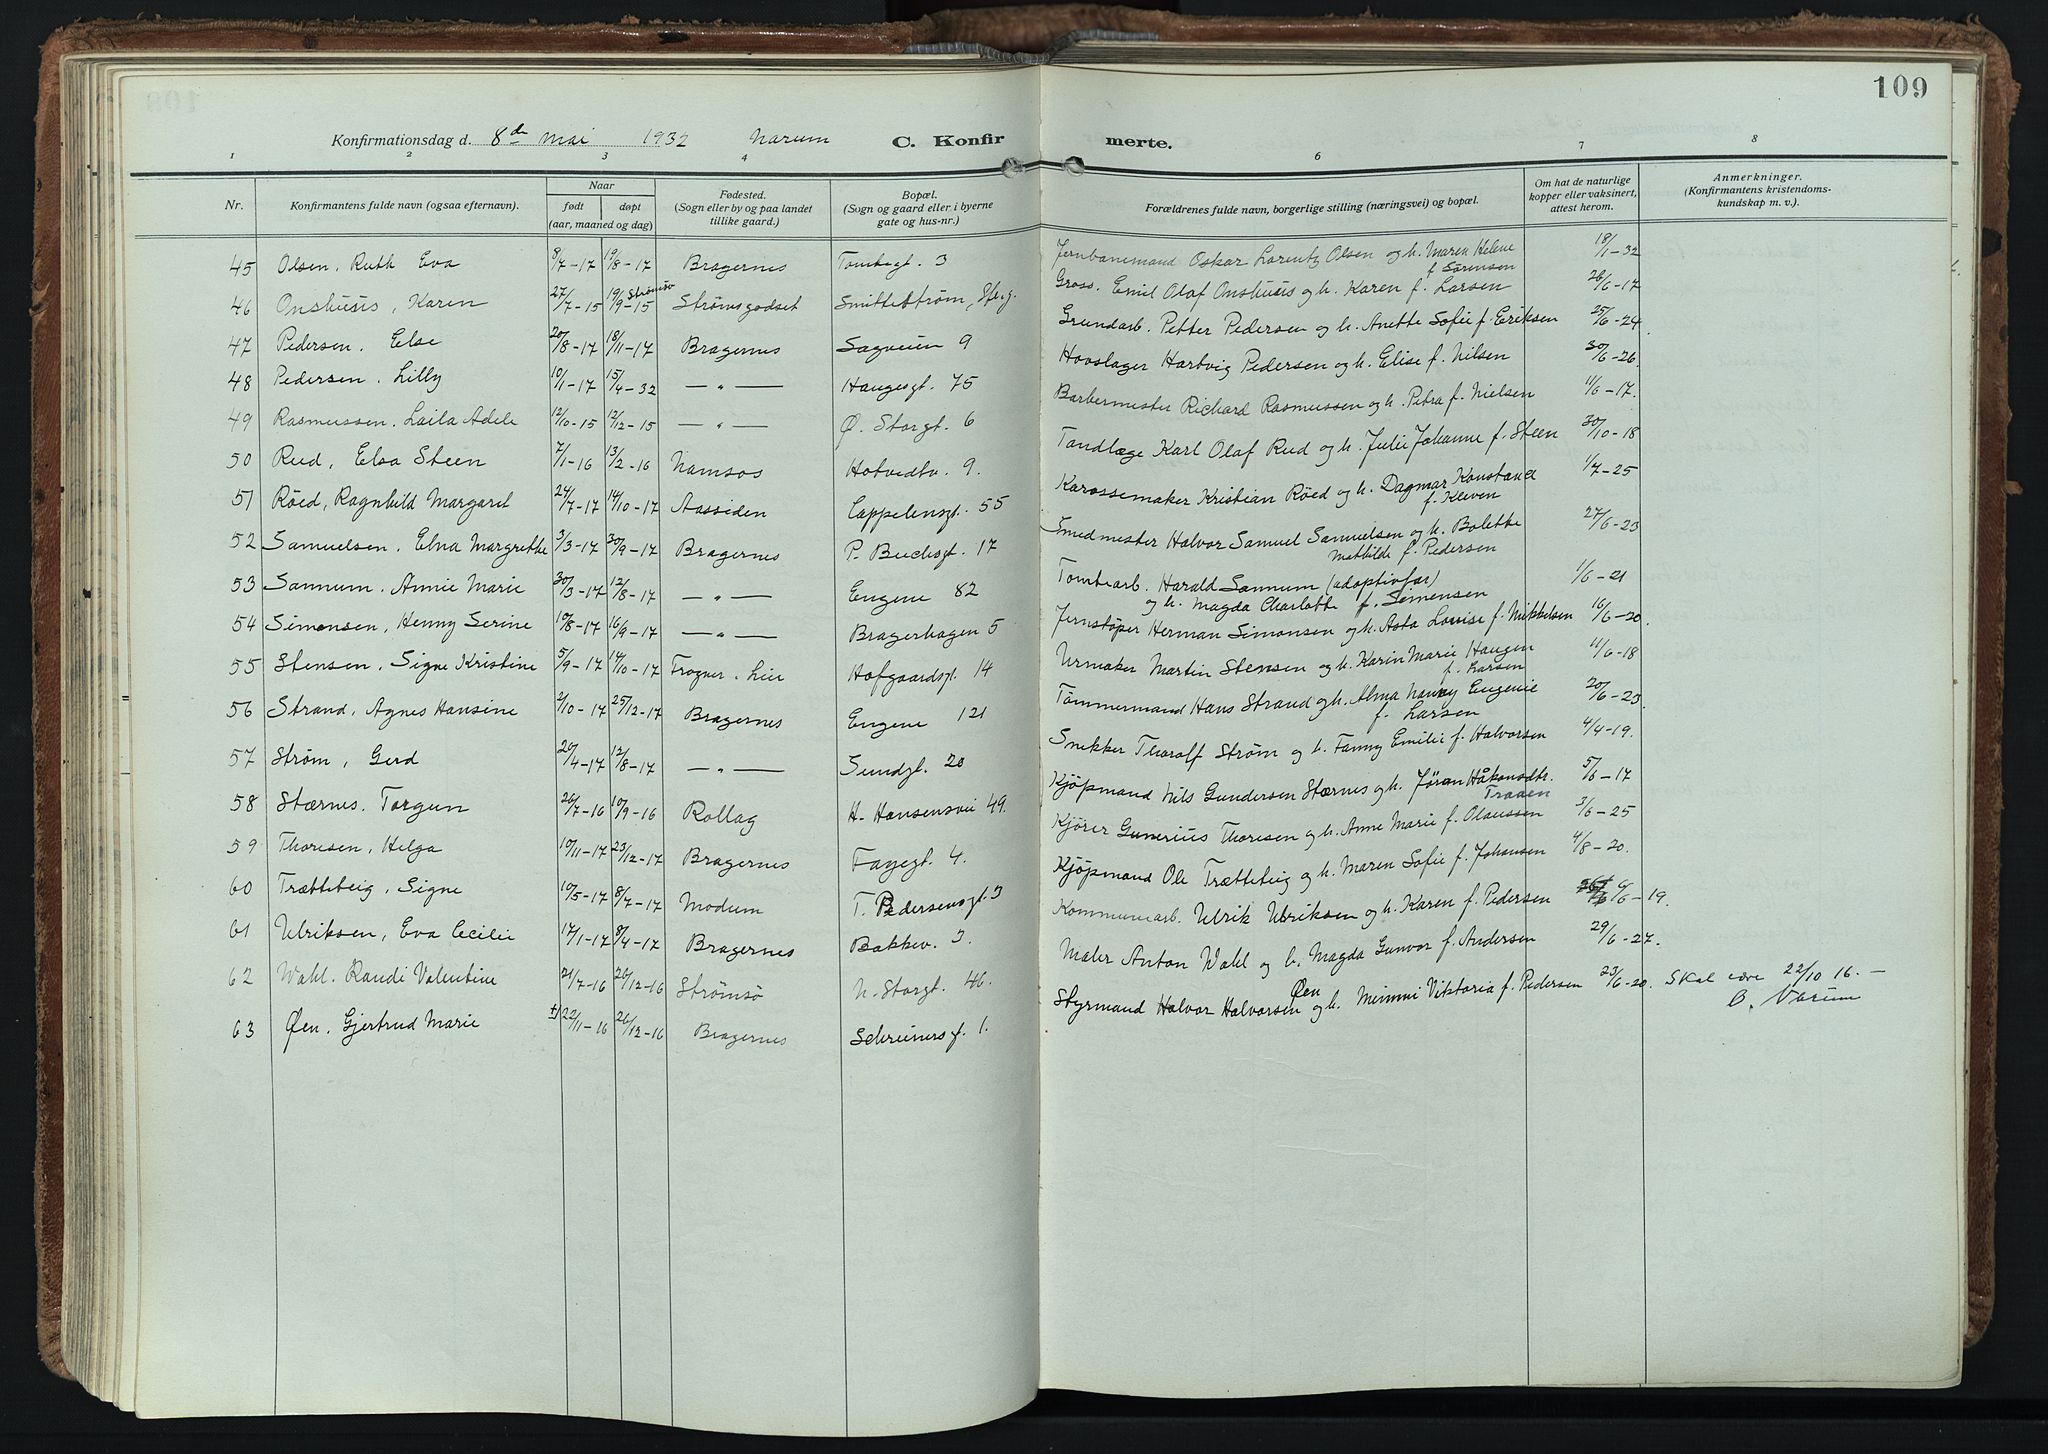 109
Konfirmationsdag d. 8de mai 1932 Narum C. Konfir merte.
1 2 3 4 6 7 8
Nr. Konfirmantens fulde navn (ogsaa efternavn). Naar født døpt (aar, maaned og dag) Fødested. (Sogn eller by og paa landet tillike gaard.) Bopæl. (Sogn og gaard eller i byerne gate og hus-nr.) Forældrenes fulde navn, borgerlige stilling (næringsvei) og bopæl. Om hat de naturlige kopper eller vaksinert, attest herom. Anmerkninger. (Konfirmantens kristendomskundskap m. v.).
45 Olsen, Ruth Eva 8/7-17 19/8-17 Bragernes Tomtegt. 3 Jernbanemand Oskar Lorentz Olsen og h. Maren Helene f. Sørensen 18/1-32
46 Onshuus, Karen 27/7-15 19/9-15 Strømsø Strømsgodset Smittestrøm, Gross. Emil Olaf Onshuus og h. Karen f. Larsen 26/6-17
47 Pedersen, Else 20/8-17 18/11-17 Bragernes Sagveien 9 Grundarb. Petter Pedersen og h. Anette Sofie f. Eriksen 25/6-24
48 Pedersen, Lilly 10/1-17 15/4-32 —„— Haugesgt. 75 Hovslager Hartvig Pedersen og h. Elise f. Nilsen 30/6-26
49 Rasmussen, Laila Adele 12/10-15 12/12-15 —„— Ø. Storgt. 6 Barbermester Richard Rasmussen og h. Petra f. Nielsen 11/6-17.
50 Rud, Elsa Steen 7/1-16 13/2-16 Namsos Hotvedtv. 9. Tandlæge Karl Olaf Rud og h. Julie Johanne f. Steen 30/10-18
51 Røed, Ragnhild Margaret 24/7-17 14/10-17 Aassiden Cappelensgt. 55 Karossemaker Kristian Røed og h. Dagmar Konstance f. Kleven 1/7-25
52 Samuelsen, Elna Margrethe 3/3-17 30/9-17 Bragernes P. Buchsgt. 17 Smedmester Halvor Samuel Samuelsen og h. Bolette Mathilde f. Pedersen 27/6-23
53 Sannum, Annie Marie 30/3-17 12/8-17 —„— Engene 82 Tomtearb. Harald Sannum (adoptivfar) og h. Magda Charlotte f. Simensen 1/6-21
54 Simonsen, Henny Serine 10/8-17 16/9-17 —„— Bragerhagen 5 Jernstøper Herman Simonsen og h. Asta Louise f. Mikkelsen 16/6-20.
55 Stensen, Signe Kristine 5/9-17 14/10-17 Frogner, Lier Hofgaardsgt. 14 Urmaker Martin Stensen og h. Karin Marie Haugen f. Larsen 11/6-18
56 Strand, Agnes Hansine 2/10-17 25/12-17 Bragernes Engene 121 Tømmermand Hans Strand og h. Alma Nanny Eugenie f. Larsen 20/6-23
57 Strøm, Gerd 20/4-17 12/8-17 —„— Sundgt. 20 Snekker Thoralf Strøm og h. Fanny Emilie f. Halvorsen 4/4-19.
58 Stærnes, Torgun 26/7-16 10/9-16 Rollag H. Hansensvei 49. Kjøpmand Nils Gundersen Stærnes og h. Jøran Håkonsdtr. Traaen 5/6-17
59 Thoresen, Helga 10/11-17 23/12-17 Bragernes Fayegt. 4. Kjører Gunerius Thoresen og h. Anne Marie f. Olaussen 3/6-25
60 Trætteteig, Signe 10/5-17 8/7-17 Modum T. Pedersensgt. 3 Kjøpmand Ole Trætteteig og h. Maren Sofie f. Johansen 4/8-20.
61 Ulriksen, Eva Cecilie 17/1-17 8/4-17 Bragernes Bakkev. 3. Kommunearb. Ulrik Ulriksen og h. Karen f. Pedersen 6/6-19.
62 Wahl, Randi Valentine 21/7-16 26/12-16 Strømsø N. Storgt. 46. Maler Anton Wahl og h. Magda Gunvor f. Andersen 29/6-27.
63 Øen, Gjertrud Marie +) 22/11-16 26/12-16 Bragernes Schreinersg. 1. Styrmand Halvor Halvorsen Øen og h. Mimmi Viktoria f. Pedersen 23/6-20. Skal være 22/10 16.—
C. Narum